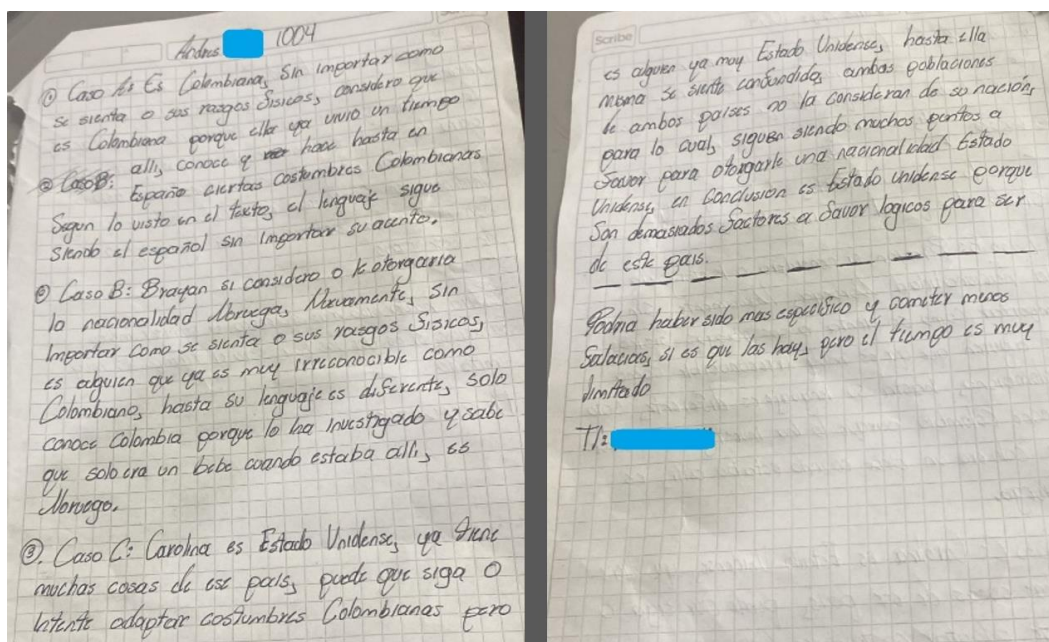 Andres 1004
① Caso A: Es Colombiana, Sin importar como
se sienta o sus rasgos Fisicos, considero que
es Colombiana porque ella ya vivio un tiempo
allí, conoce y hace hasta en
② Caso B: España ciertas costumbres Colombianas
Segun lo visto en el texto, el lenguaje sigue
siendo el español sin importar su acento.
② Caso B: Brayan si considero o le otorgaria
la nacionalidad Noruega, Nuevamente, Sin
importar como se sienta o sus rasgos Fisicos,
es alguien que ya es muy irreconocible como
Colombiano, hasta su lenguaje es diferente, solo
conoce Colombia porque lo ha investigado y sabe
que solo era un bebe cuando estaba allí, es
Noruego.
③. Caso C: Carolina es Estado Unidense, ya tiene
muchas cosas de ese pais, puede que siga o
intente adaptar costumbres Colombianas pero
Scribe
es alguien ya muy Estado Unidense, hasta ella
misma se siente confundida, ambas poblaciones
de ambos paises no la consideran de su nación,
para lo cual, siguen siendo muchos puntos a
favor para otorgarle una nacionalidad Estado
Unidense, en conclusion es Estado unidense porque
Son demasiados factores a favor logicos para ser
de este pais.
Podria haber sido mas especifico y cometer menos
falacias, si es que las hay, pero el tiempo es muy
limitado
TI: